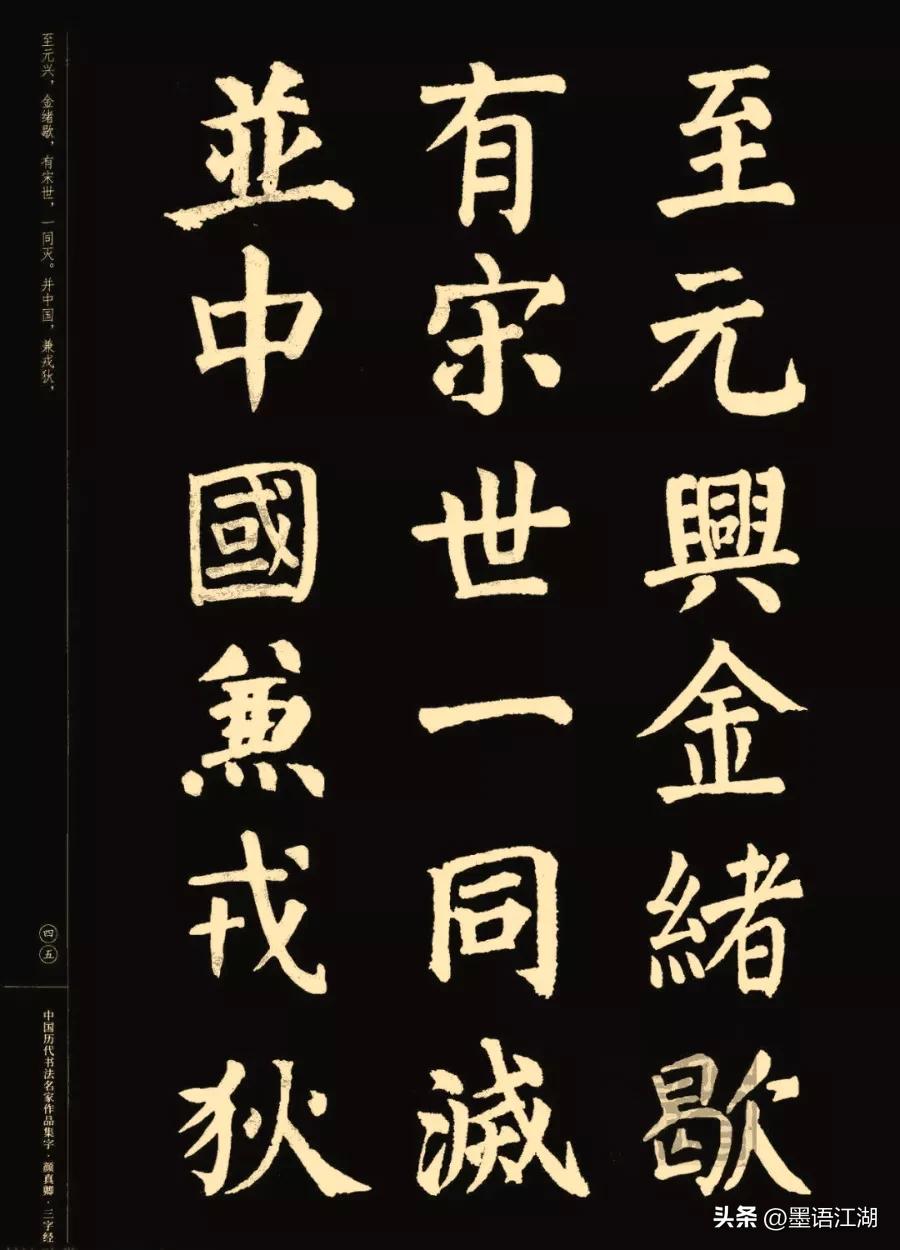 至元興金緒歇
有宋世一同滅
並中國兼戎狄
至元兴，金绪歇，有宋世，一同灭。并中国，兼戎狄，
四五
中国历代书法名家作品集字·颜真卿·三字经
头条 @墨语江湖